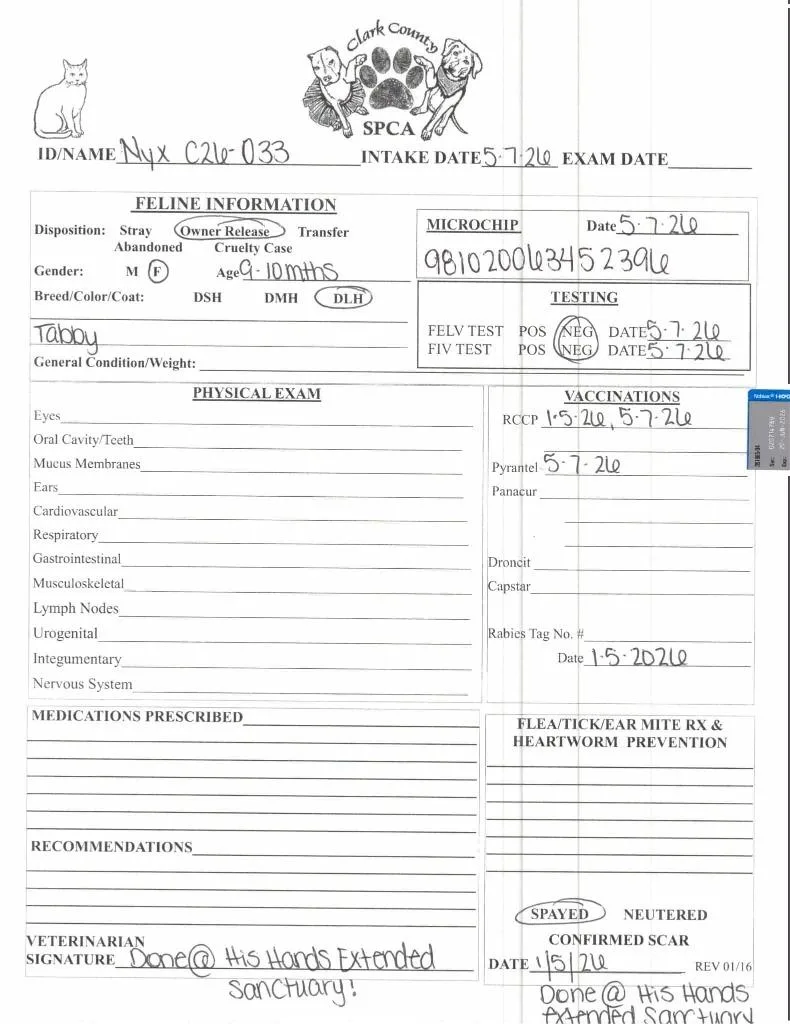 Clark County
SPCA
ID/NAME Nyx C26-033 INTAKE DATE 5·7·26 EXAM DATE
FELINE INFORMATION
Disposition: Stray Owner Release Transfer
Abandoned Cruelty Case
Gender: M F Age 9-10mths
Breed/Color/Coat: DSH DMH DLH
Tabby
General Condition/Weight:
MICROCHIP Date 5·7·26
981020063452396
TESTING
FELV TEST POS NEG DATE 5·7·26
FIV TEST POS NEG DATE 5·7·26
PHYSICAL EXAM
Eyes
Oral Cavity/Teeth
Mucus Membranes
Ears
Cardiovascular
Respiratory
Gastrointestinal
Musculoskeletal
Lymph Nodes
Urogenital
Integumentary
Nervous System
VACCINATIONS
RCCP 1·5·26, 5·7·26
Pyrantel 5·7·26
Panacur
Droncit
Capstar
Rabies Tag No. #
Date 1·5·2026
MEDICATIONS PRESCRIBED
RECOMMENDATIONS
VETERINARIAN
SIGNATURE Done @ His Hands Extended
Sanctuary!
FLEA/TICK/EAR MITE RX &
HEARTWORM PREVENTION
SPAYED NEUTERED
CONFIRMED SCAR
DATE 1/5/26 REV 01/16
Done @ His Hands
Extended Sanctuary